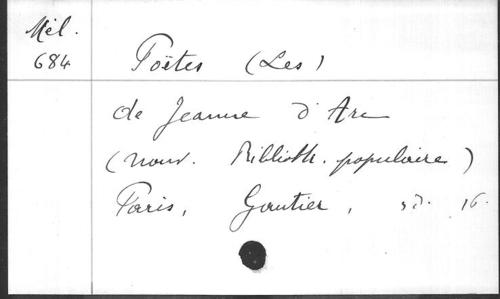 Mél.
684
Poëtes (Les)
de Jeanne d'Arc
(nouv. Biblioth. populaire)
Paris, Gautier, sd. 16.